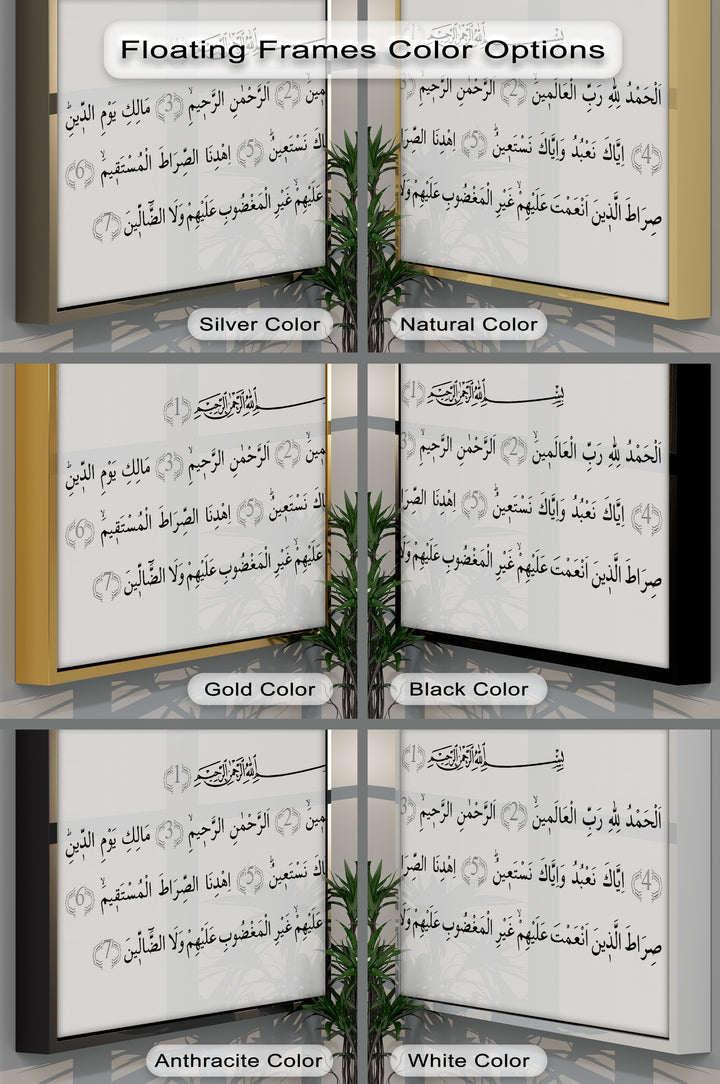 Floating Frames Color Options
اَلرَّحْمٰنِ الرَّحٖيمِۙ (3) مَالِكِ يَوْمِ الدّٖينِؕ
نَسْتَعٖينُؕ (5) اِهْدِنَا الصِّرَاطَ الْمُسْتَقٖيمَۙ (6)
عَلَيْهِمْۙ غَيْرِ الْمَغْضُوبِ عَلَيْهِمْ وَلَا الضَّٓالّٖينَ (7)
Silver Color
اَلْحَمْدُ لِلّٰهِ رَبِّ الْعَالَمٖينَۙ (2) اَلرَّحْمٰنِ الرَّحٖيمِۙ
(4) اِيَّاكَ نَعْبُدُ وَاِيَّاكَ نَسْتَعٖينُؕ (5) اِهْدِنَا
صِرَاطَ الَّذٖينَ اَنْعَمْتَ عَلَيْهِمْۙ غَيْرِ الْمَغْضُوبِ عَلَيْهِمْ
Natural Color
بِسْــــمِ اللّٰهِ الرَّحْمٰنِ الرَّحٖيمِ (1)
(2) اَلرَّحْمٰنِ الرَّحٖيمِۙ (3) مَالِكِ يَوْمِ الدّٖينِؕ
نَسْتَعٖينُؕ (5) اِهْدِنَا الصِّرَاطَ الْمُسْتَقٖيمَۙ (6)
عَلَيْهِمْۙ غَيْرِ الْمَغْضُوبِ عَلَيْهِمْ وَلَا الضَّٓالّٖينَ (7)
Gold Color
بِسْــــمِ اللّٰهِ الرَّحْمٰنِ الرَّحٖيمِ (1)
اَلْحَمْدُ لِلّٰهِ رَبِّ الْعَالَمٖينَۙ (2) اَلرَّحْمٰنِ الرَّحٖيمِۙ
(4) اِيَّاكَ نَعْبُدُ وَاِيَّاكَ نَسْتَعٖينُؕ (5) اِهْدِنَا
صِرَاطَ الَّذٖينَ اَنْعَمْتَ عَلَيْهِمْۙ غَيْرِ الْمَغْضُوبِ عَلَيْهِمْ
Black Color
(1)
(2) اَلرَّحْمٰنِ الرَّحٖيمِۙ (3) مَالِكِ يَوْمِ الدّٖينِؕ
نَسْتَعٖينُؕ (5) اِهْدِنَا الصِّرَاطَ الْمُسْتَقٖيمَۙ (6)
عَلَيْهِمْۙ غَيْرِ الْمَغْضُوبِ عَلَيْهِمْ وَلَا الضَّٓالّٖينَ (7)
Anthracite Color
بِسْــــمِ اللّٰهِ الرَّحْمٰنِ الرَّحٖيمِ (1)
اَلْحَمْدُ لِلّٰهِ رَبِّ الْعَالَمٖينَۙ (2) اَلرَّحْمٰنِ الرَّحٖيمِۙ
(4) اِيَّاكَ نَعْبُدُ وَاِيَّاكَ نَسْتَعٖينُؕ (5) اِهْدِنَا
صِرَاطَ الَّذٖينَ اَنْعَمْتَ عَلَيْهِمْۙ غَيْرِ الْمَغْضُوبِ عَلَيْهِمْ
White Color